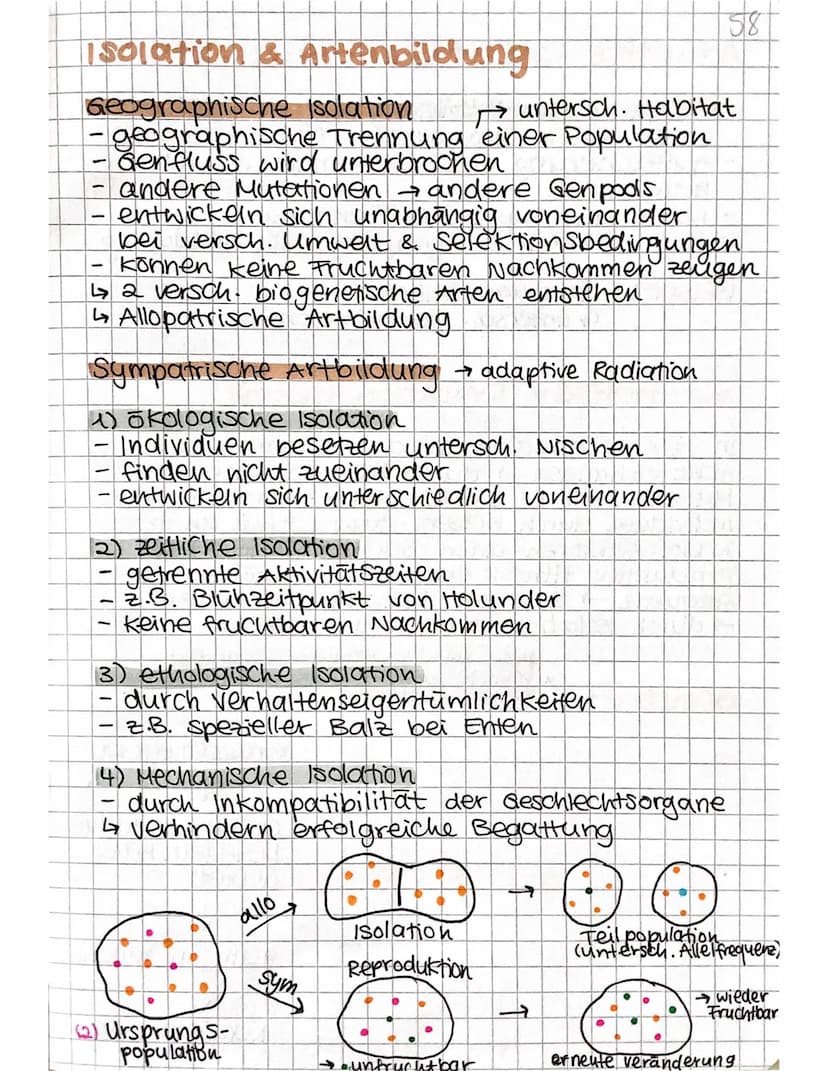 58
Isolation & Artenbildung
Geographische Isolation → untersch. Habitat
- geographische Trennung einer Population
- Genfluss wird unterbrochen
- andere Mutationen → andere Genpools
- entwickeln sich unabhängig voneinander
bei versch. Umwelt & Selektionsbedingungen
- können keine Fruchtbaren Nachkommen zeugen
↳ 2 versch. biogenetische Arten entstehen
↳ Allopatrische Artbildung
Sympatrische Artbildung → adaptive Radiation
1) ökologische Isolation
- Individuen besetzen untersch. Nischen
- finden nicht zueinander
- entwickeln sich unterschiedlich voneinander
2) zeitliche Isolation
- getrennte Aktivitätszeiten
- z.B. Blühzeitpunkt von Holunder
- keine fruchtbaren Nachkommen
3) ethologische Isolation
- durch Verhaltenseigentümlichkeiten
- z.B. spezieller Balz bei Enten
4) Mechanische Isolation
- durch Inkompatibilität der Geschlechtsorgane
↳ verhindern erfolgreiche Begattung
allo →
→
Isolation
Teilpopulation
(untersch. Allelfrequenz)
Reproduktion
sym →
→
→ wieder
Fruchtbar
(2) Ursprungs-
population
→ unfruchtbar
erneute veränderung